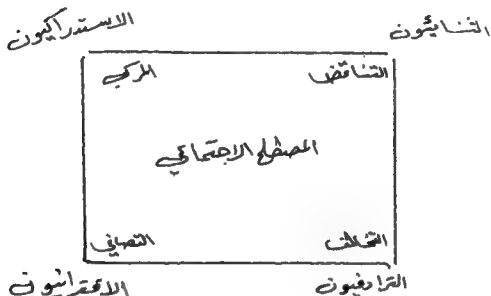 الثنائيون الاستدراكيون
التناقض المركبي
المصطلح الاجتماعي
التخالف التصافي
الترادفيون الاقترانيون